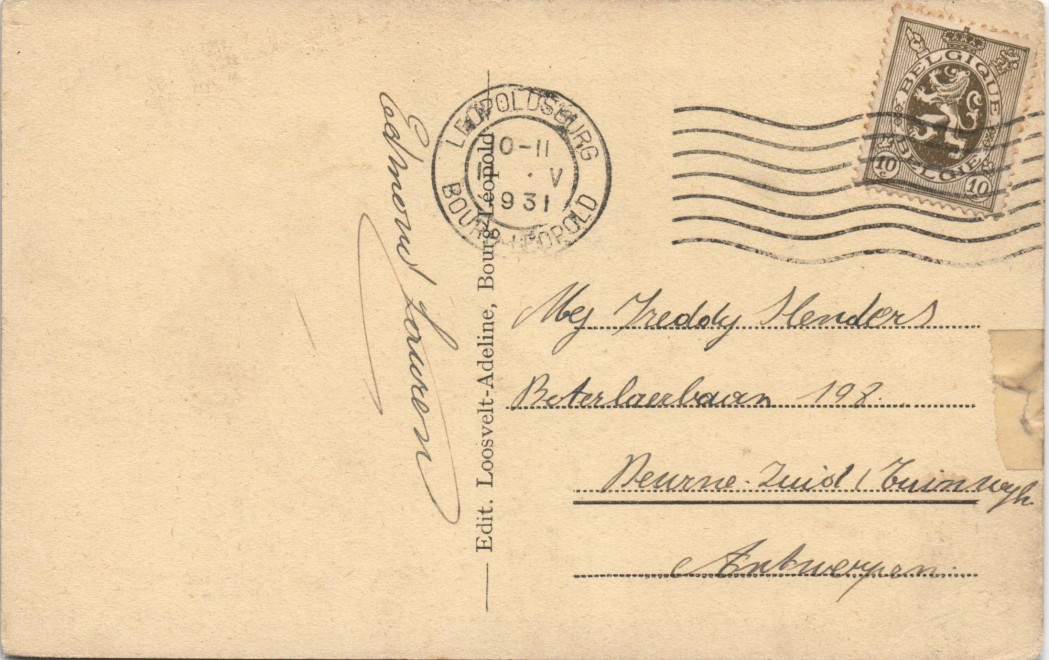 Edmond Louwen
Edit. Loosvelt-Adeline, Bourg-Léopold
LEOPOLDSBURG
10-11
V
1931
BOURG-LEOPOLD
BELGIQUE
BELGIË
10 c
10 c
Mej Freddy Slenders
Boterlaerbaan 198.
Deurne-Zuid (Tuinwijk
Antwerpen.